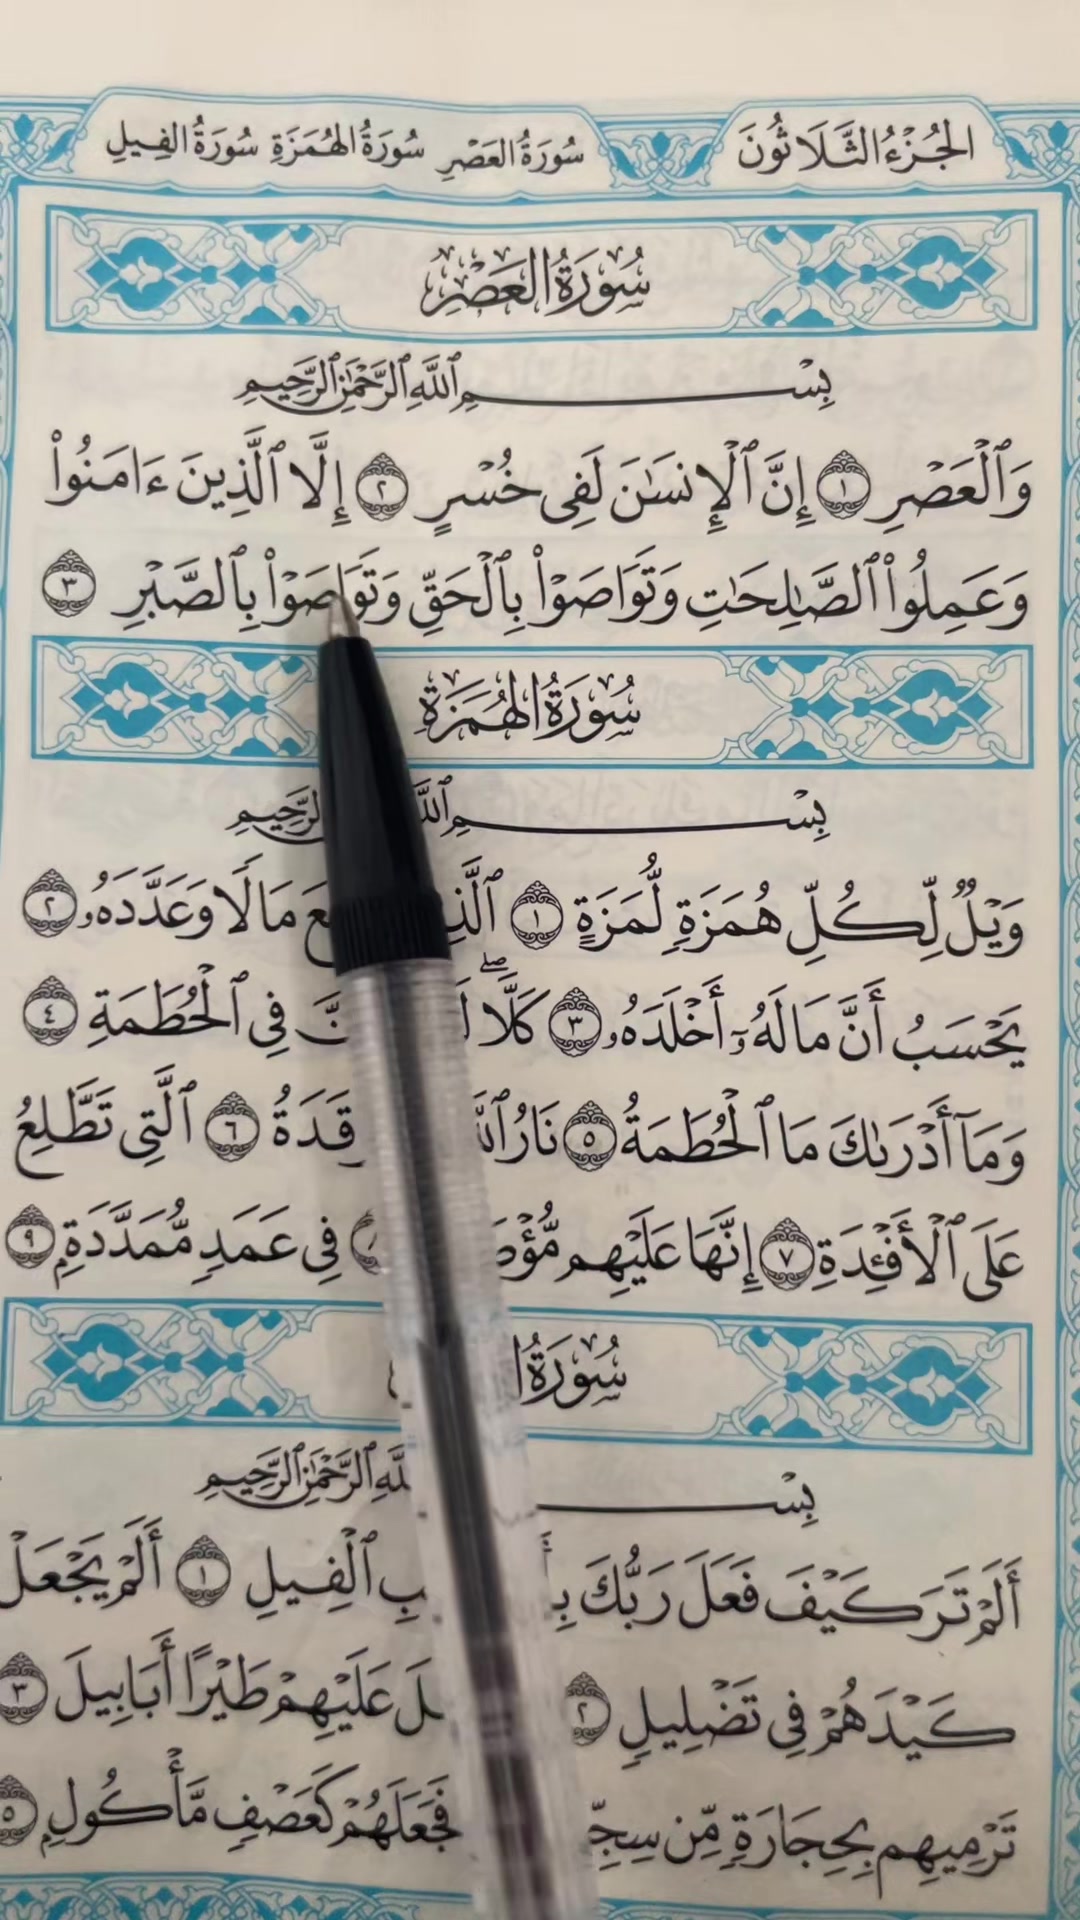 الجُزْءُ الثَّلَاثُونَ سُورَةُ العَصْرِ سُورَةُ الهُمَزَةِ سُورَةُ الفِيلِ
سُورَةُ العَصْرِ
بِسْمِ ٱللَّهِ ٱلرَّحْمَٰنِ ٱلرَّحِيمِ
وَٱلْعَصْرِ ١ إِنَّ ٱلْإِنسَٰنَ لَفِى خُسْرٍ ٢ إِلَّا ٱلَّذِينَ ءَامَنُوا۟
وَعَمِلُوا۟ ٱلصَّٰلِحَٰتِ وَتَوَاصَوْا۟ بِٱلْحَقِّ وَتَوَاصَوْا۟ بِٱلصَّبْرِ ٣
سُورَةُ الهُمَزَةِ
بِسْمِ ٱلرَّحِيمِ
وَيْلٌ لِّكُلِّ هُمَزَةٍ لُّمَزَةٍ ١ مَالًا وَعَدَّدَهُۥ ٢
يَحْسَبُ أَنَّ مَالَهُۥٓ أَخْلَدَهُۥ ٣ كَلَّا ۖ فِى ٱلْحُطَمَةِ ٤
وَمَآ أَدْرَىٰكَ مَا ٱلْحُطَمَةُ ٥ نَارُ قَدَةُ ٦ ٱلَّتِى تَطَّلِعُ
عَلَى ٱلْأَفْـِٔدَةِ ٧ إِنَّهَا عَلَيْهِم مُّؤْصَ فِى عَمَدٍ مُّمَدَّدَةٍۭ ٩
سُورَةُ
بِسْ ٱلرَّحْمَٰنِ ٱلرَّحِيمِ
أَلَمْ تَرَ كَيْفَ فَعَلَ رَبُّكَ ٱلْفِيلِ ١ أَلَمْ يَجْعَلْ
كَيْدَهُمْ فِى تَضْلِيلٍ ٢ عَلَيْهِمْ طَيْرًا أَبَابِيلَ ٣
تَرْمِيهِم بِحِجَارَةٍ مِّن سِجِّ فَجَعَلَهُمْ كَعَصْفٍ مَّأْكُولٍۭ ٥